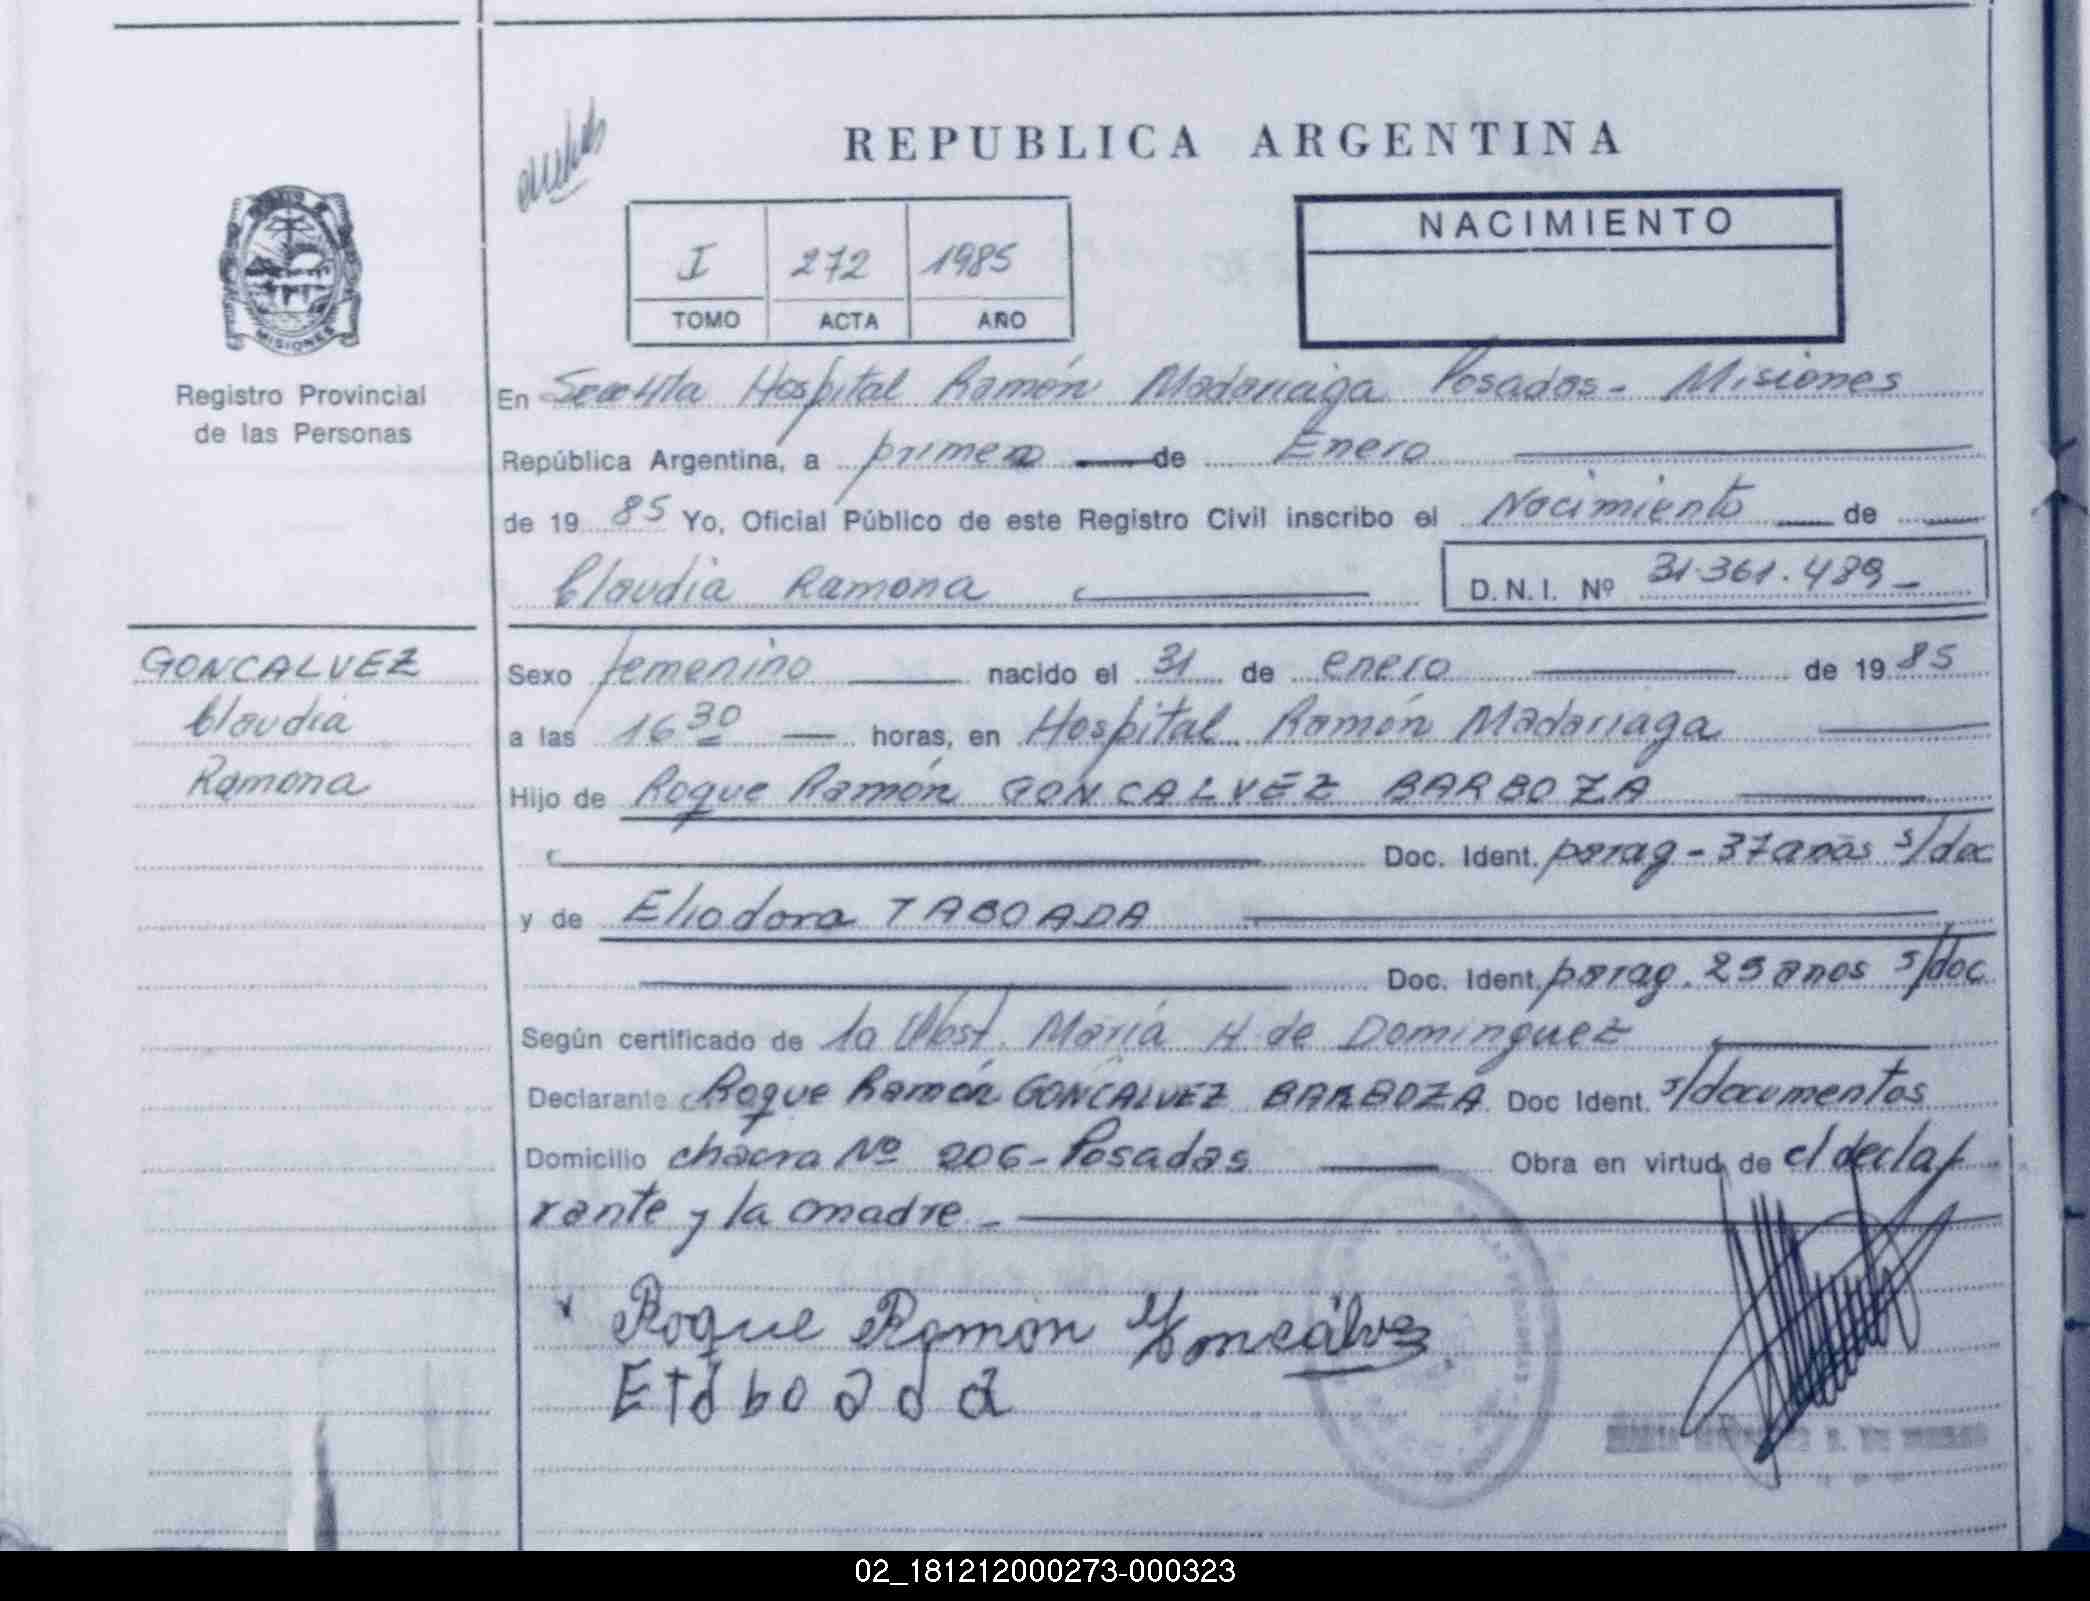 REPUBLICA ARGENTINA
I 272 1985
TOMO ACTA AÑO
NACIMIENTO
MISIONES
Registro Provincial
de las Personas
En Hospital Ramón Madariaga Posadas - Misiones
República Argentina, a primero de Enero
de 1985 Yo, Oficial Público de este Registro Civil inscribo el Nacimiento de
Claudia Ramona
D.N.I. Nº 31.361.489 -
GONCALVEZ
Claudia
Ramona
Sexo femenino nacido el 31 de enero de 1985
a las 16 30 horas, en Hospital Ramón Madariaga
Hijo de Roque Ramón GONCALVEZ BARBOZA
Doc. Ident. parag - 37 anos s/doc
y de Eliodora TABOADA
Doc. Ident. parag. 25 anos s/doc
Según certificado de la Obst. María H de Dominguez
Declarante Roque Ramón GONCALVEZ BARBOZA Doc Ident. s/documentos
Domicilio chacra Nº 206 - Posadas Obra en virtud de el decla
rante y la madre -
Roque Ramon Goncálvez
E Taboada
02_181212000273-000323